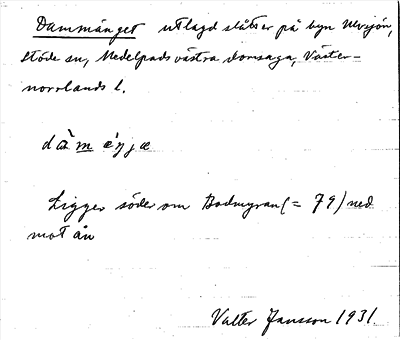 Dammänget utlagd slåtter på byn Ulvsjön,
Stöde sn, Medelpads västra domsaga, Väster-
norrlands l.
dàm ǽŋjæ
Ligger söder om Bodmyran (= 79) ned
mot ån
Valter Jansson 1931